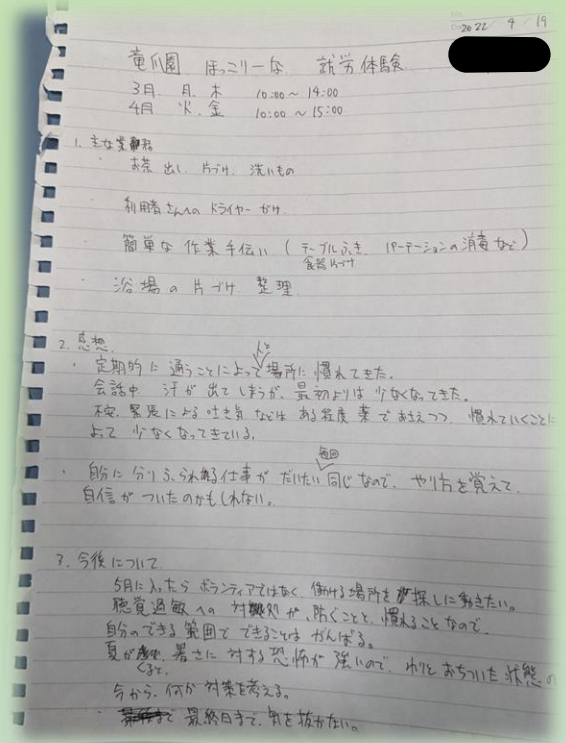 2022 / 4 / 19
竜爪園 ほっこりーな 就労体験
3月 月、木 10:00～14:00
4月 火、金 10:00～15:00
1. 主な業務
・お茶出し、片づけ、洗いもの
・利用者さんへのドライヤーがけ
・簡単な作業手伝い（テーブルふき、パーテーションの消毒など）
食器片づけ
・浴場の片づけ 整理
2. 感想
・定期的に通うことによって人と場所に慣れてきた。
会話中 汗が出てしまうが、最初よりは少なくなってきた。
不安、緊張による吐き気などはある程度薬でおさえつつ、慣れていくことに
よって少なくなってきている。
・自分に分りふられる仕事がだいたい毎回同じなので、やり方を覚えて、
自信がついたのかもしれない。
3. 今後について
5月に入ったらボランティアではなく、働ける場所を探しに動きたい。
聴覚過敏への対処が、防ぐことと、慣れることなので、
自分のできる範囲でできることはがんばる。
夏がくると、暑さに対する恐怖が強いので、わりとおちついた状態の
今から、何か対策を考える。
・最終日まで、気を抜かない。